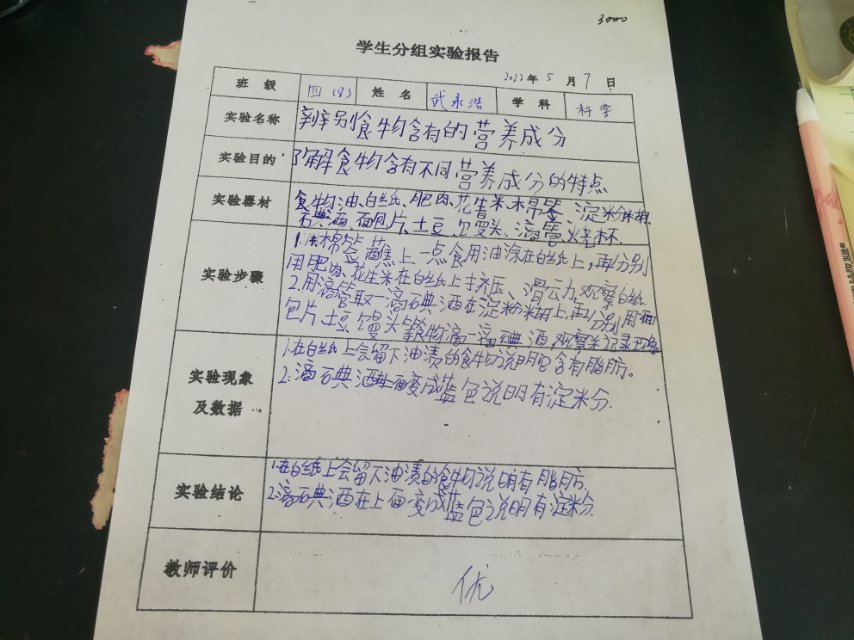 3000
学生分组实验报告
2022年5月7日
班级 四(8) 姓名 武永浩 学科 科学
实验名称 辨别食物含有的营养成分
实验目的 了解食物含有不同营养成分的特点
实验器材 食物油、白纸、肥肉、花生米、棉签、淀粉糊、
碘酒、面包片、土豆、馒头、滴管、烧杯.
实验步骤 1.用棉签蘸上一点食用油涂在白纸上,再分别
用肥肉、花生米在白纸上挤压、滑动,观察白纸.
2.用滴管取一滴碘酒在淀粉糊上,再分别用面
包片、土豆、馒头等食物滴一滴碘酒观察
实验现象及数据 1.在白纸上会留下油渍的食物说明它含有脂肪。
2.滴碘酒上面变成蓝色说明有淀粉.
实验结论 1.在白纸上会留下油渍的食物说明有脂肪.
2.滴碘酒在上面变成蓝色说明有淀粉.
教师评价 优